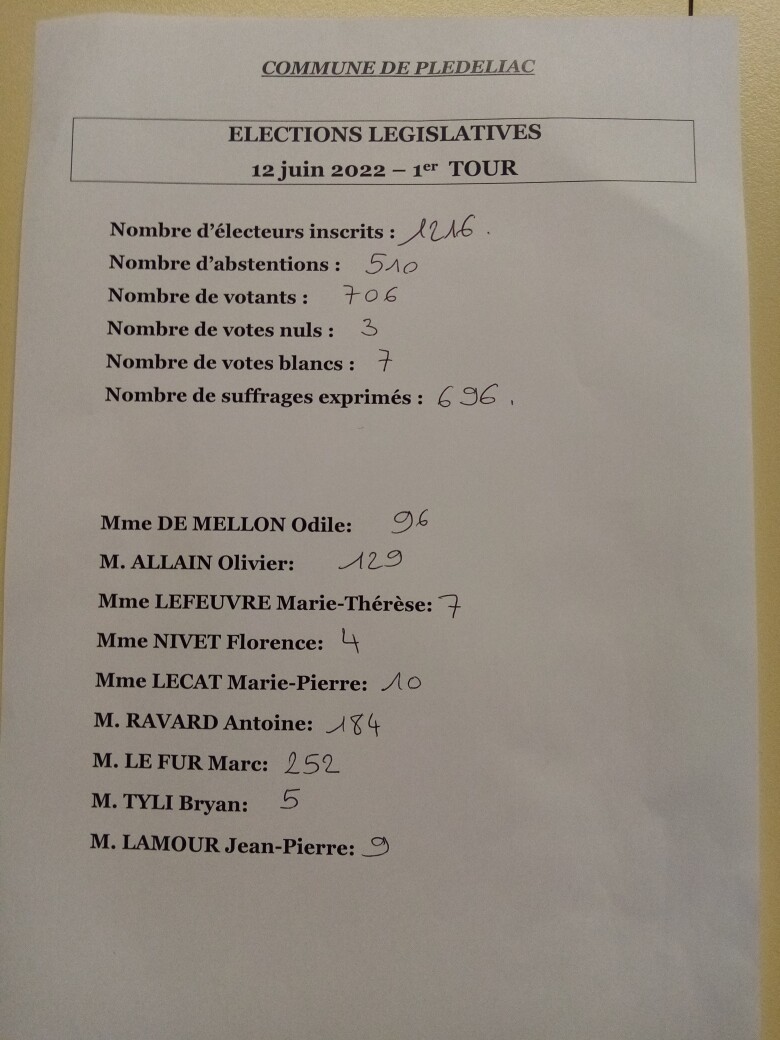 COMMUNE DE PLEDELIAC
ELECTIONS LEGISLATIVES
12 juin 2022 – 1er TOUR
Nombre d'électeurs inscrits : 1216.
Nombre d'abstentions : 510
Nombre de votants : 706
Nombre de votes nuls : 3
Nombre de votes blancs : 7
Nombre de suffrages exprimés : 696.
Mme DE MELLON Odile: 96
M. ALLAIN Olivier: 129
Mme LEFEUVRE Marie-Thérèse: 7
Mme NIVET Florence: 4
Mme LECAT Marie-Pierre: 10
M. RAVARD Antoine: 184
M. LE FUR Marc: 252
M. TYLI Bryan: 5
M. LAMOUR Jean-Pierre: 9